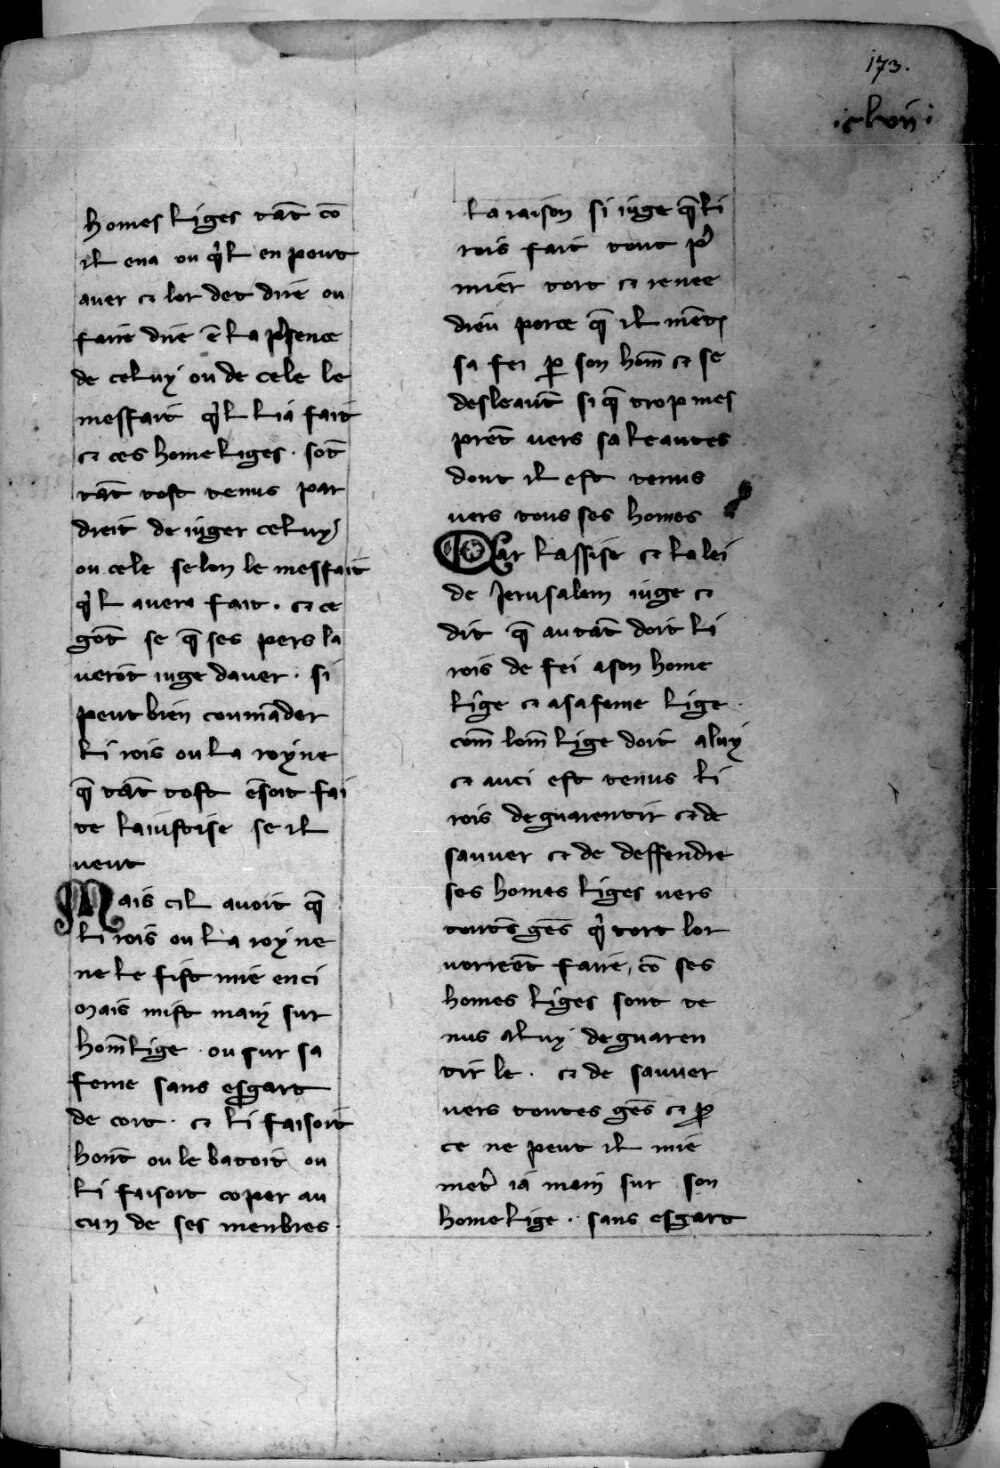 173.
.clvii.
homes liges tāt cō
il ena ou q̓l en peut
auer ⁊ lor det dire ou
faire dire ē la p̓sence
de celuy ou de cele le
meffait q̓l lia fait
⁊ ces home liges . sōt
tāt tost tenus par
dreit de iuger celuy
ou cele selon le meffait
q̓l auera fait . ⁊ ce
gōt se q̄ ses pers la
uerōt iuge dauer . si
peut bien coumāder
li rois ou la royne
q̄ tāt tost ē soit fai
te la iustise se il
ueut
Mais cil auoit q̄
li rois ou la royne
ne le fist mie enci
mais mist main sur
hom̄ lige . ou sur sa
feme sans esgart
de cort . ⁊ li faisoit
hont̄ ou le batoit ou
li faisoit coper au
cun de ses menbres .
la raison si iuge q̄ li
rois fait tout p̓
mier tort ⁊ renee
dieu porce q̄ il mēt
sa fei ꝑ son hom̄ ⁊ se
desleaut̄ si q̄ trop mes
prēt uers sa leautes
dont il est tenus
uers tous ses homes
Car lassise ⁊ la lei
de Jerusalem iuge ⁊
dit q̄ autāt doit li
rois de fei a son home
lige ⁊ a sa feme lige .
com̄ lom̄ lige doit a luy
⁊ auci est tenus li
rois de guarentir ⁊ de
sauuer ⁊ de deffendre
ses homes liges uers
toutēs gēs q̓ tort lor
uorreēt faire , cō ses
homes liges sont te
nus a luy de guaren
tir le . ⁊ de sauuer
uers toutes gēs ⁊ ꝑ
ce ne peut il mie
met̓ ia main sur son
home lige . sans esgart